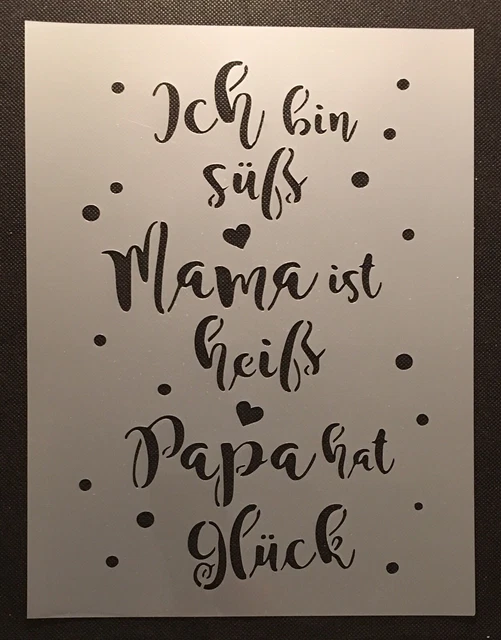 Ich bin
süß
Mama ist
heiß
Papa hat
glück